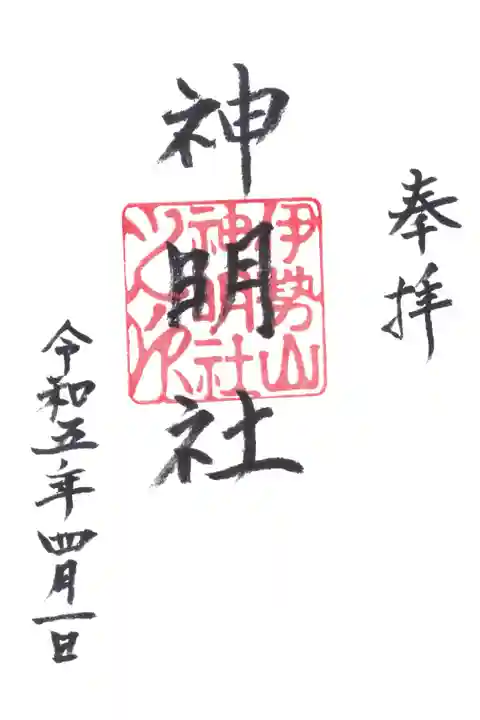 奉拝
神明社
伊勢山
神明社
之印
令和五年四月一日